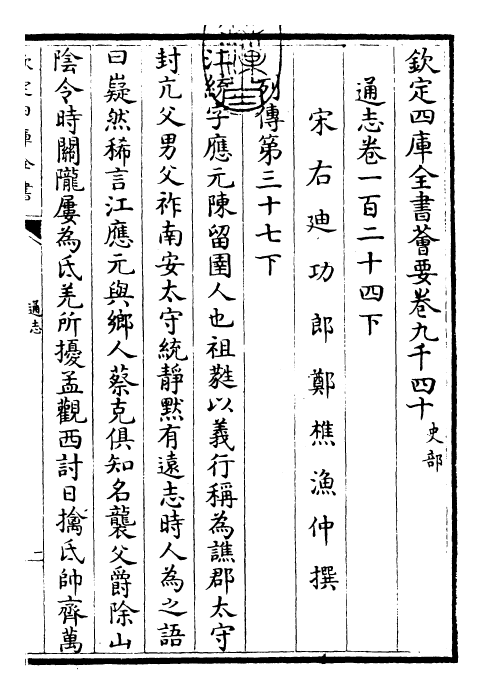 欽定四庫全書薈要卷九千四十
史部
通志卷一百二十四下
宋右迪功郎鄭樵漁仲撰
列傳第三十七下
江統字應元陳留圉人也祖蕤以義行稱為譙郡太守
封亢父男父祚南安太守統靜默有遠志時人為之語
曰嶷然稀言江應元與鄉人蔡克俱知名襲父爵除山
陰令時關隴屢為氐羌所擾孟觀西討日擒氐帥齊萬
欽定四庫全書
通志